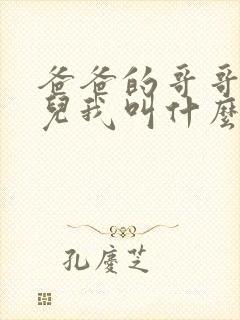 爸爸的哥哥
兒我叫什麼
孔慶芝